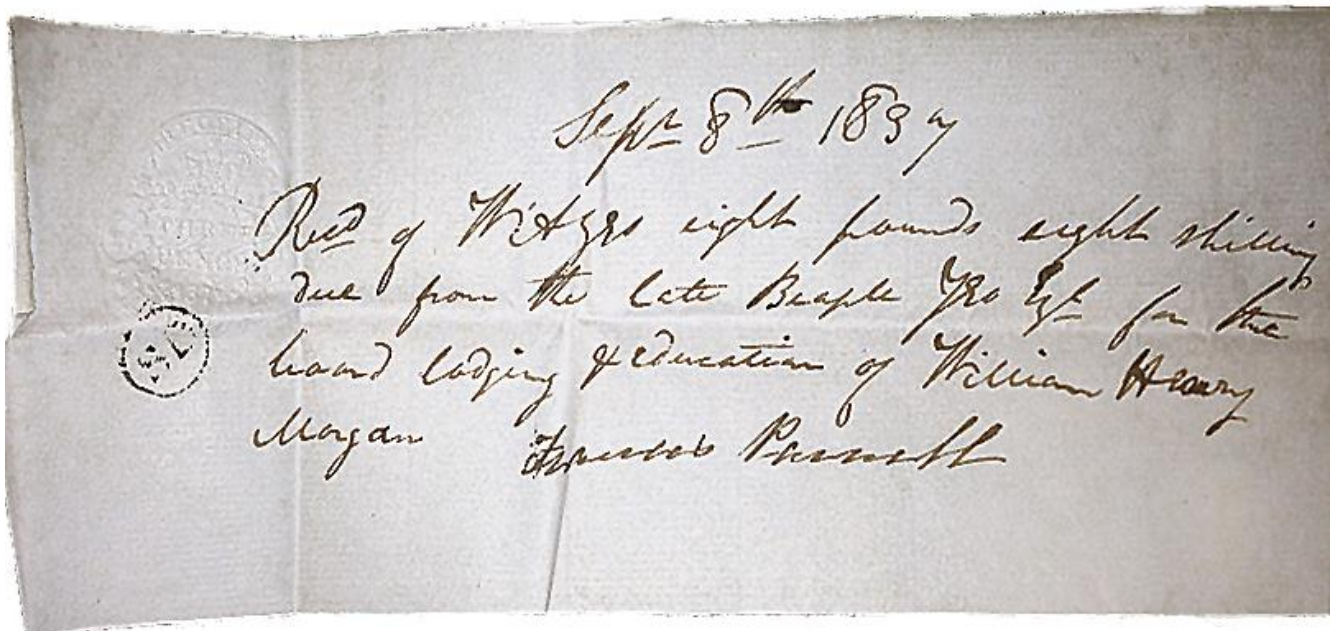 Septr 8th 1837
Recd of W: A Yeo eight pounds eight shillings
due from the late Beaple Yeo Esqr for the
board lodging & education of William Henry
Morgan Francis Pannell